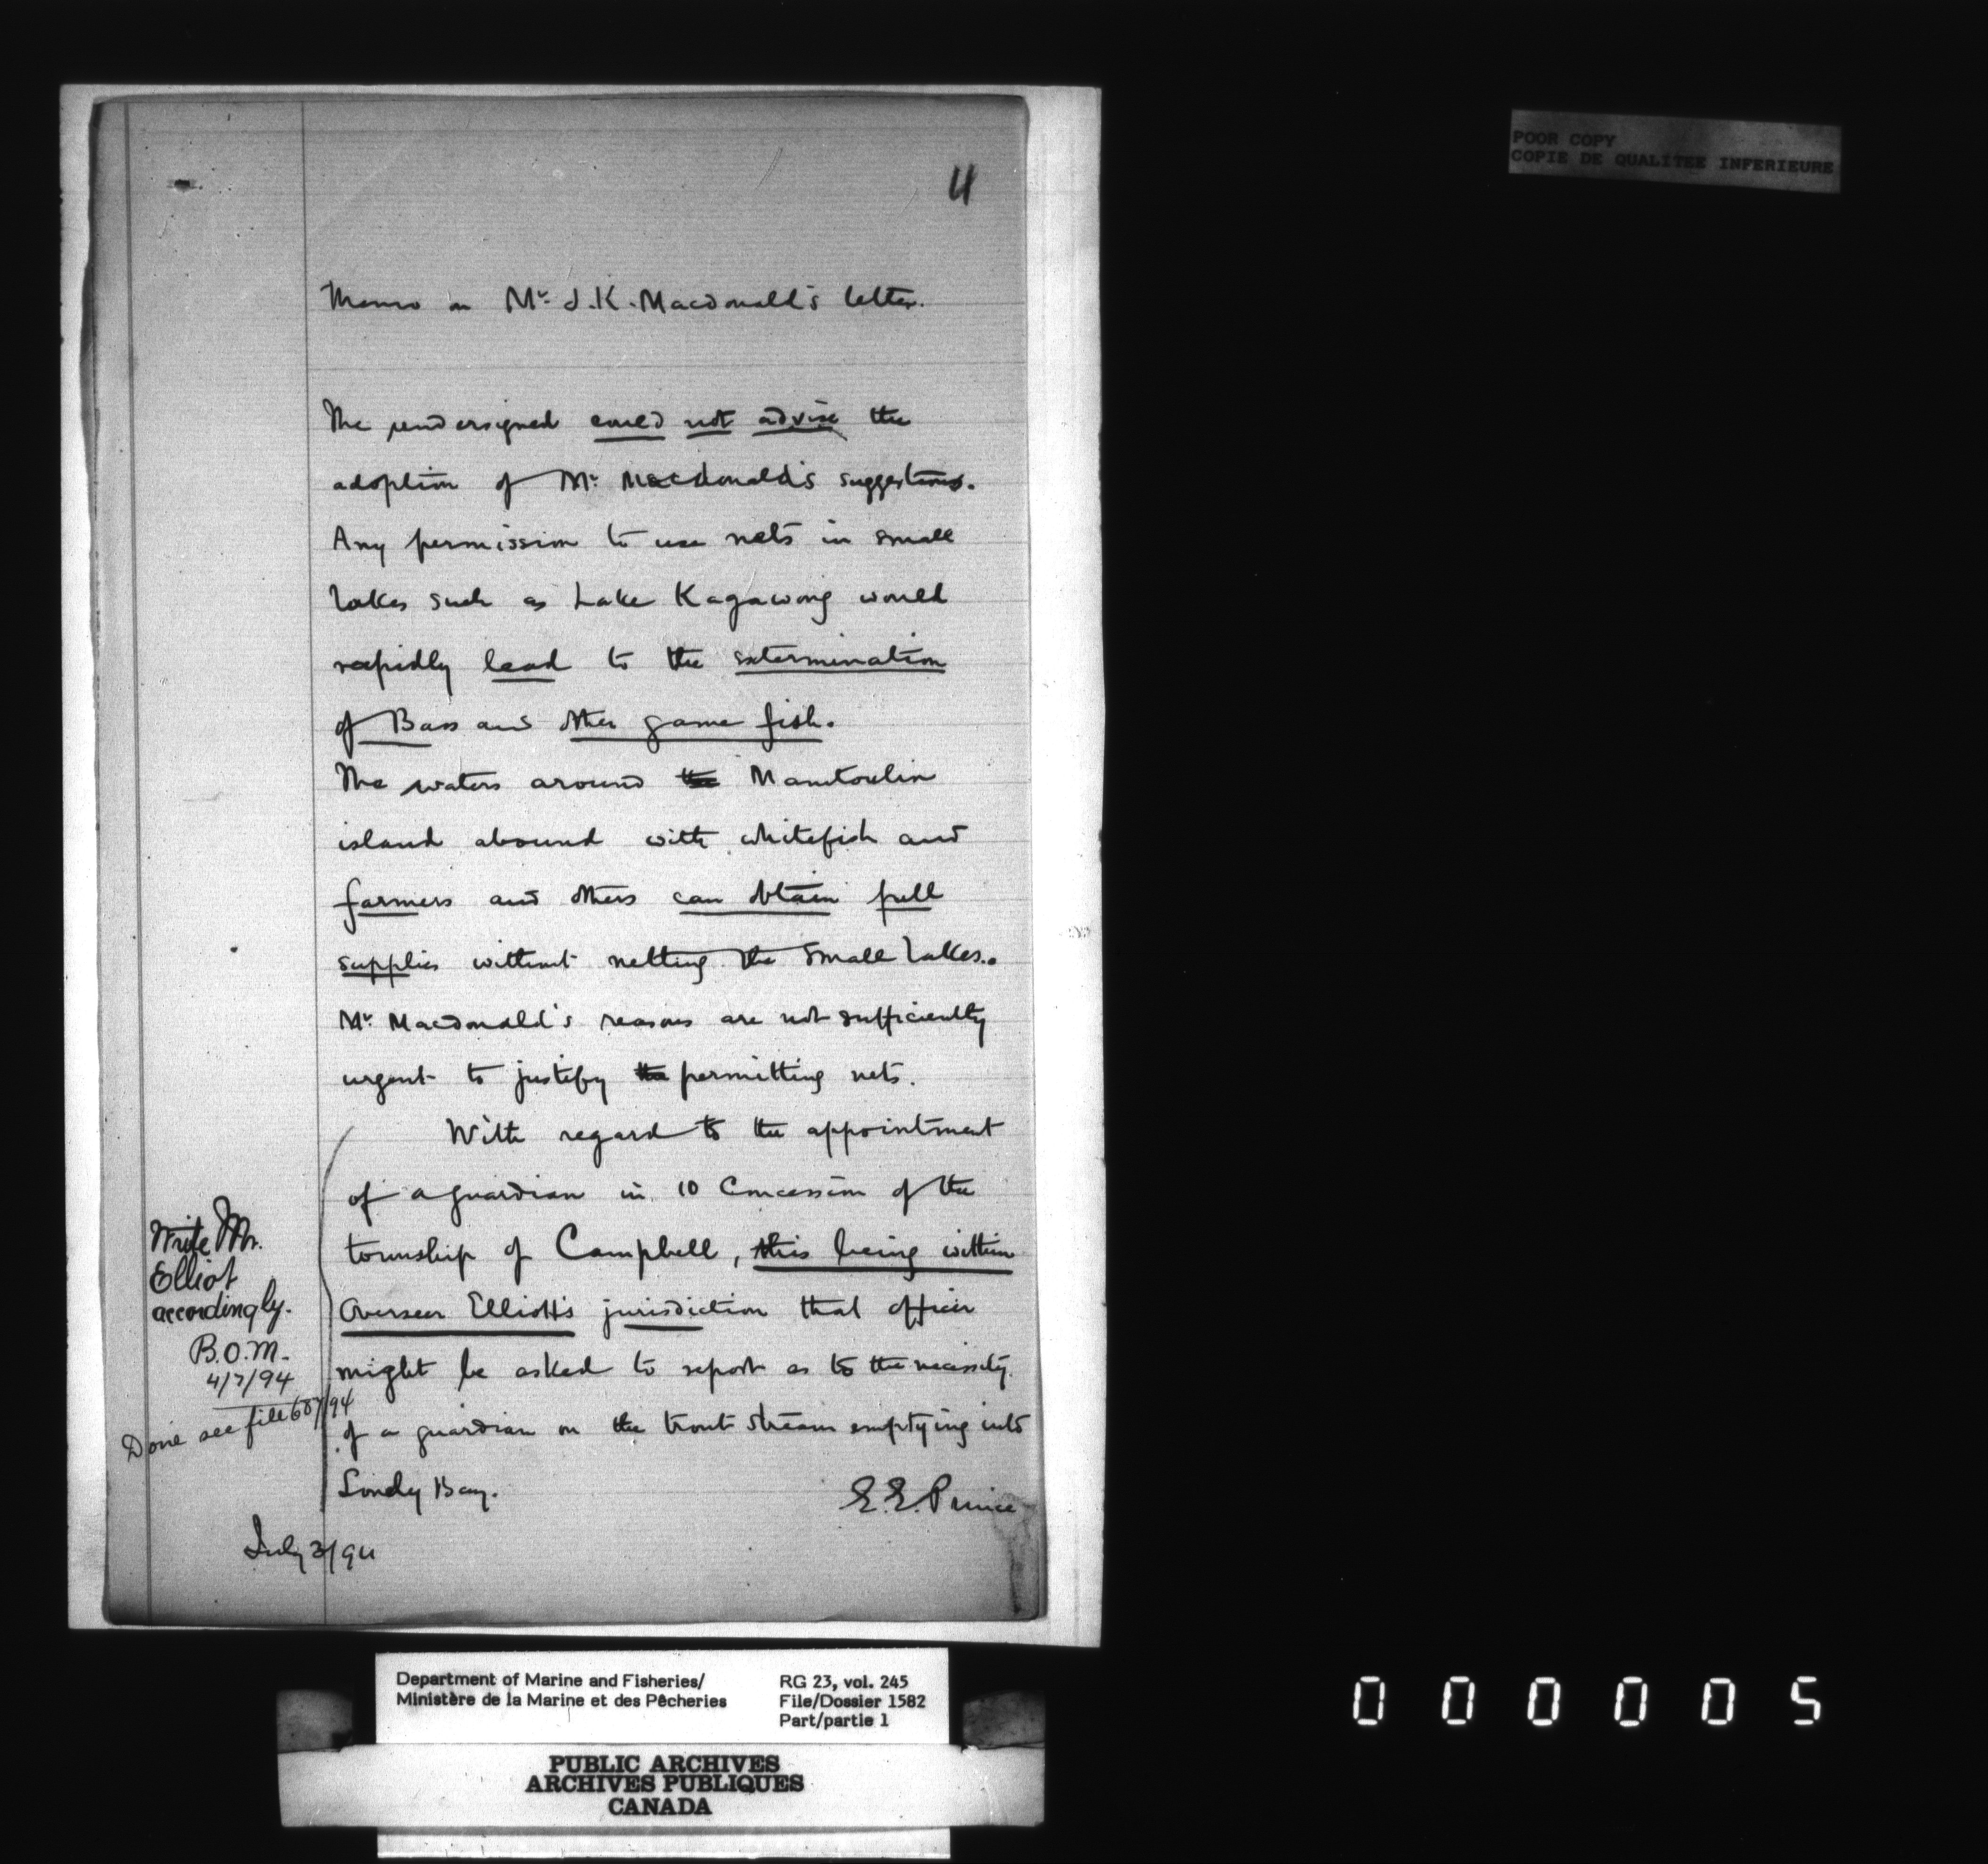 POOR COPY
COPIE DE QUALITEE INFERIEURE
4
Memo on Mr. J.K. Macdonald's letter.
The undersigned could not advise the
adoption of Mr. Macdonald's suggestions.
Any permission to use nets in small
lakes such as Lake Kagawong would
rapidly lead to the extermination
of Bass and other game fish.
The waters around the Manitoulin
island abound with whitefish and
farmers and others can obtain full
supplies without netting the small lakes.
Mr. Macdonald's reasons are not sufficiently
urgent to justify the permitting nets.
With regard to the appointment
of a guardian in 10 Concession of the
township of Campbell, this being within
Overseer Elliott's jurisdiction that officer
might be asked to report as to the necessity
of a guardian on the trout stream emptying into
Bay.
E.E. Prince
July 3/94
Write Mr.
Elliot
accordingly.
B.O.M.
4/7/94
Done see file
Department of Marine and Fisheries/
Ministère de la Marine et des Pêcheries
RG 23, vol. 245
File/Dossier 1582
Part/partie 1
PUBLIC ARCHIVES
ARCHIVES PUBLIQUES
CANADA
000005